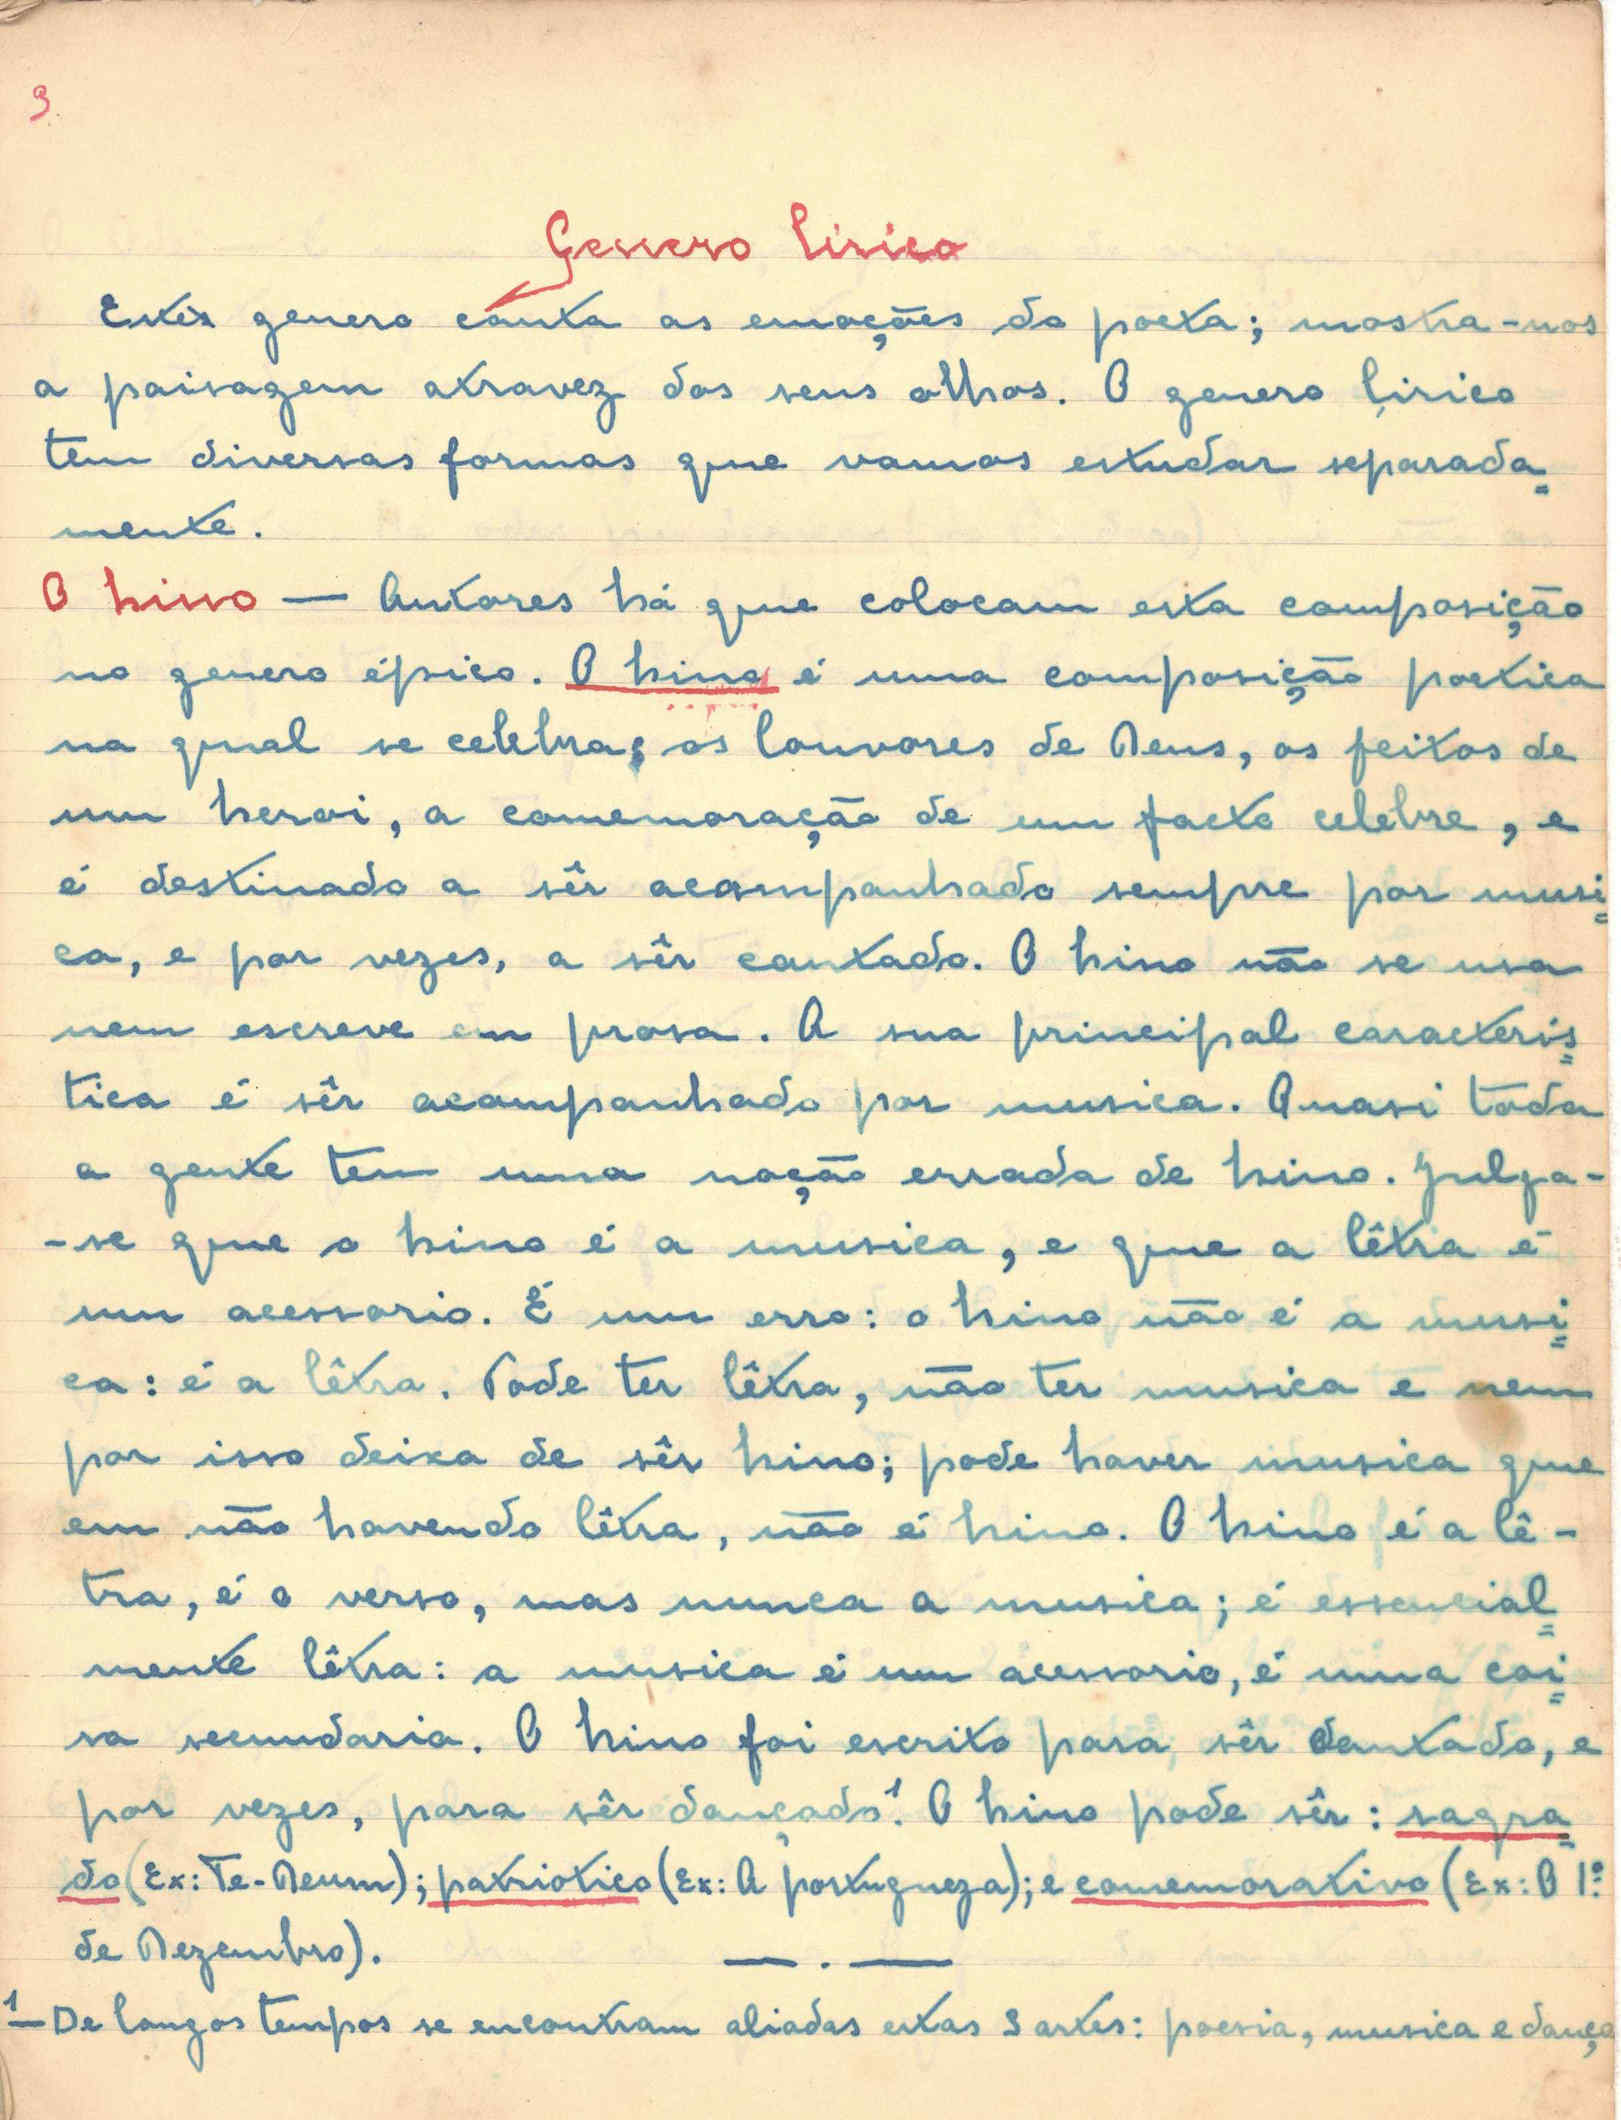 9
Genero lirico
Este genero canta as emoções do poeta; mostra-nos
a paisagem atravez dos seus olhos. O genero lirico
tem diversas formas que vamos estudar separada=
mente.
O hino — Autores há que colocam esta composição
no genero épico. O hino é uma composição poetica
na qual se celebra: os louvores de Deus, os feitos de
um heroi, a comemoração de um facto celebre, e
é destinado a sêr acompanhado sempre por musi=
ca, e por vezes, a sêr cantado. O hino não se usa
nem escreve em prosa. A sua principal caracterís=
tica é sêr acompanhado por musica. Quasi toda
a gente tem uma noção errada de hino. Julga-
-se que o hino é a musica, e que a lêtra é
um acessorio. É um erro: o hino não é a musi=
ca: é a lêtra. Pode ter lêtra, não ter musica e nem
por isso deixa de sêr hino; pode haver musica que
em não havendo lêtra, não é hino. O hino é a lê-
tra, é o verso, mas nunca a musica; é essencial=
mente lêtra: a musica é um acessorio, é uma coi=
sa secundaria. O hino foi escrito para sêr cantado, e
por vezes, para sêr dançado¹. O hino pode sêr: sagra=
do (Ex: Te-Deum); patriotico (Ex: A portugueza); e comemorativo (Ex: O 1º
de Dezembro).
— . —
¹—De longos tempos se encontram aliadas estas 3 artes: poesia, musica e dança